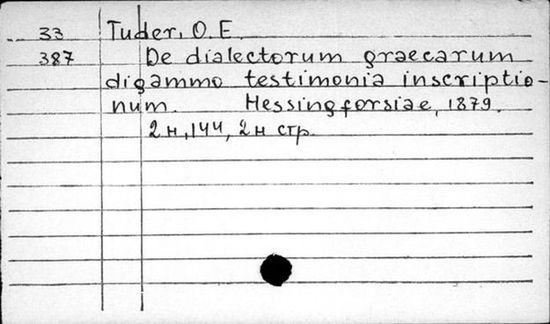 33 Tuder, O. E.
387 De dialectorum graecarum
digammo testimonia inscriptio-
num. Hessingforsiae, 1879.
2н, 144, 2н стр.